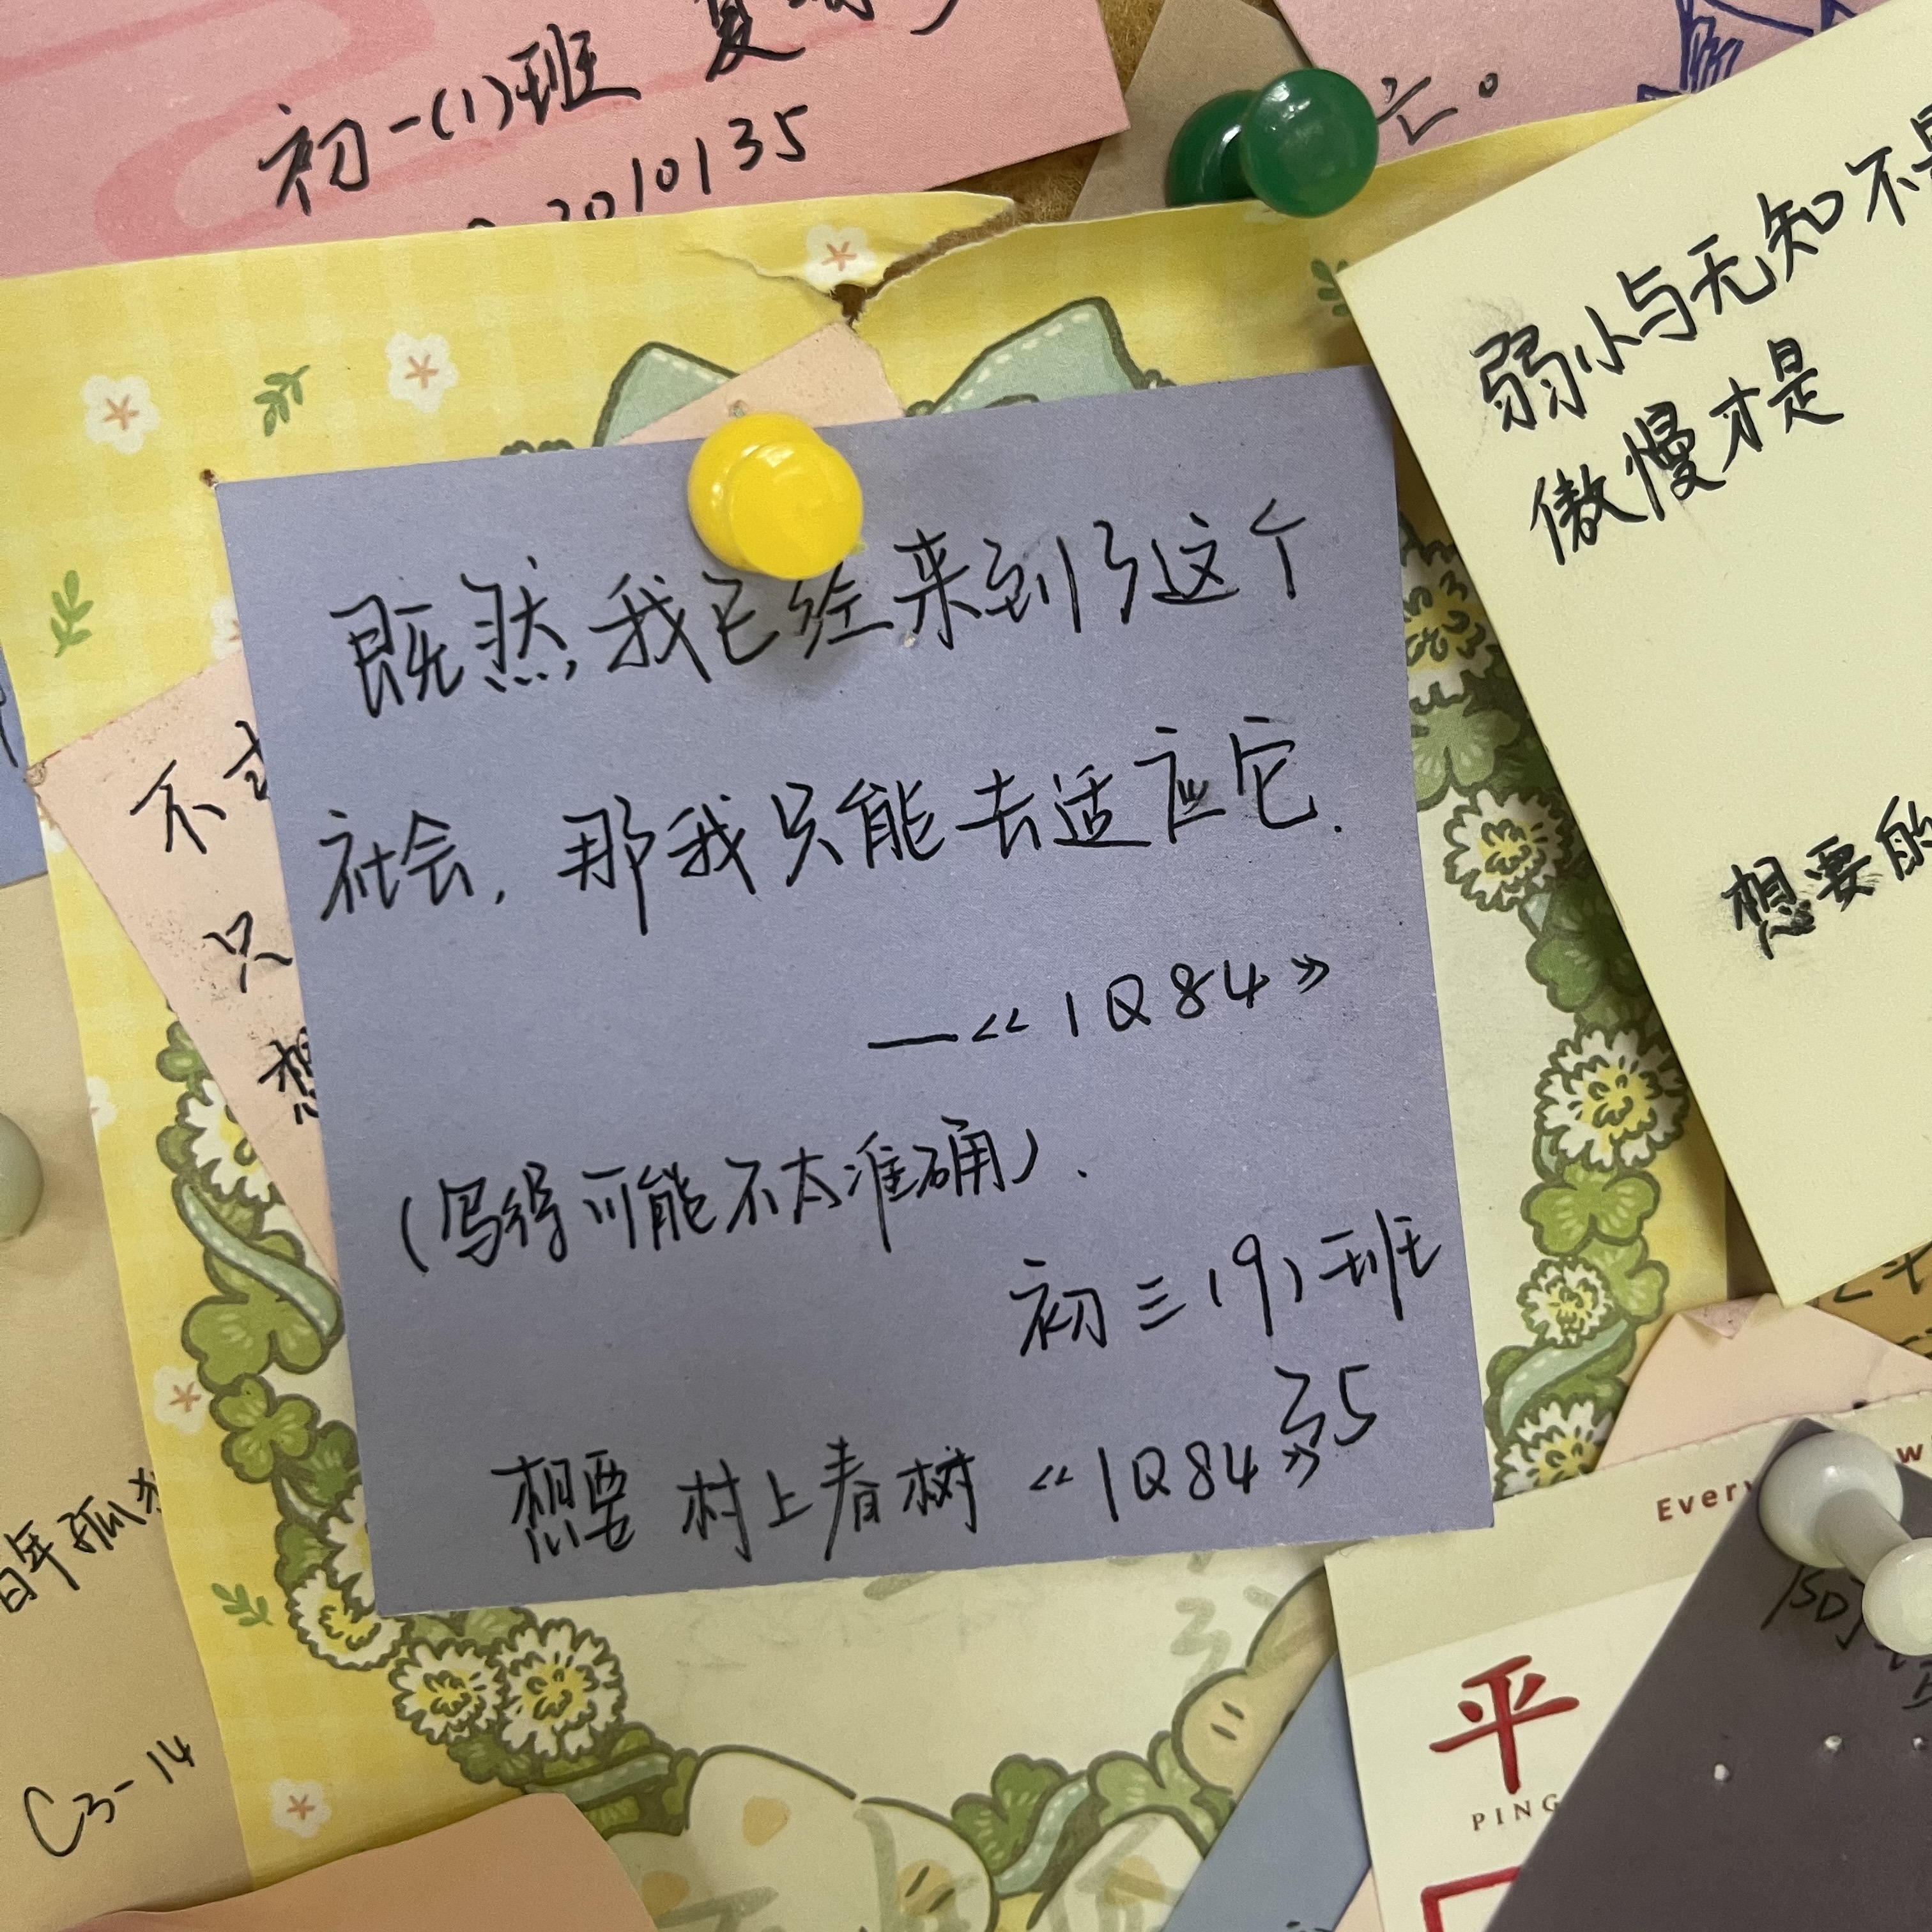 初一(1)班 夏
2010135
弱小与无知不是
傲慢才是
想要的
既然,我已经来到了这个
社会,那我只能去适应它.
—《1Q84》
(写得可能不太准确).
初三(9)班
35
想要 村上春树《1Q84》
不
只
想
百年孤
C3-14
Every
平
PING